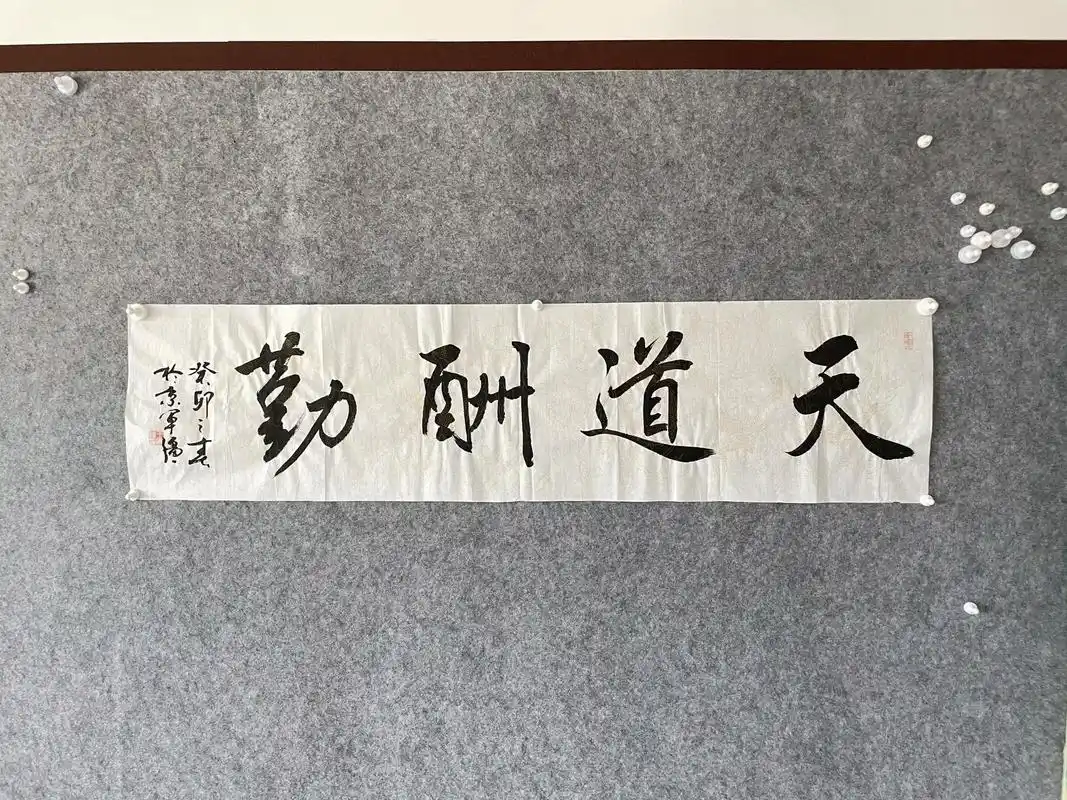 天道酬勤
癸卯之春
於京軍